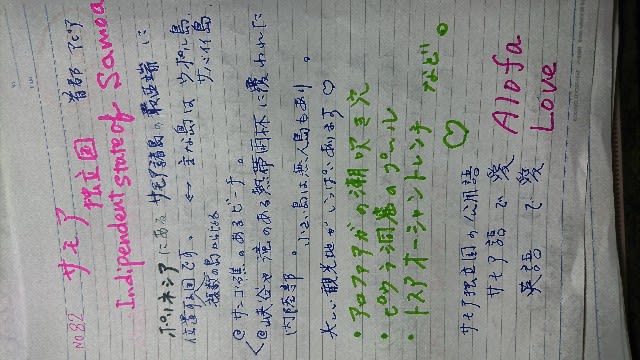 No82 サモア 首都 アピア
独立国
Indipendent state of Samoa
ポリネシアにある サモア諸島の 最西端 に
位置する国です。 ← 主な島は ウポル島
複数の島からなる サバイイ島
@サンゴ礁のあるビーチ。
@峡谷や滝のある熱帯雨林に覆われた
内陸部。 小さい島は無人島もあり。
美しい観光地がいっぱいあります♡
・アロファアガの潮吹き穴
・ピウラ洞窟のプール
・トスアオーシャントレンチ など。
♡
サモア独立国の公用語
サモア語 で 愛 Alofa
英語 で 愛 Love